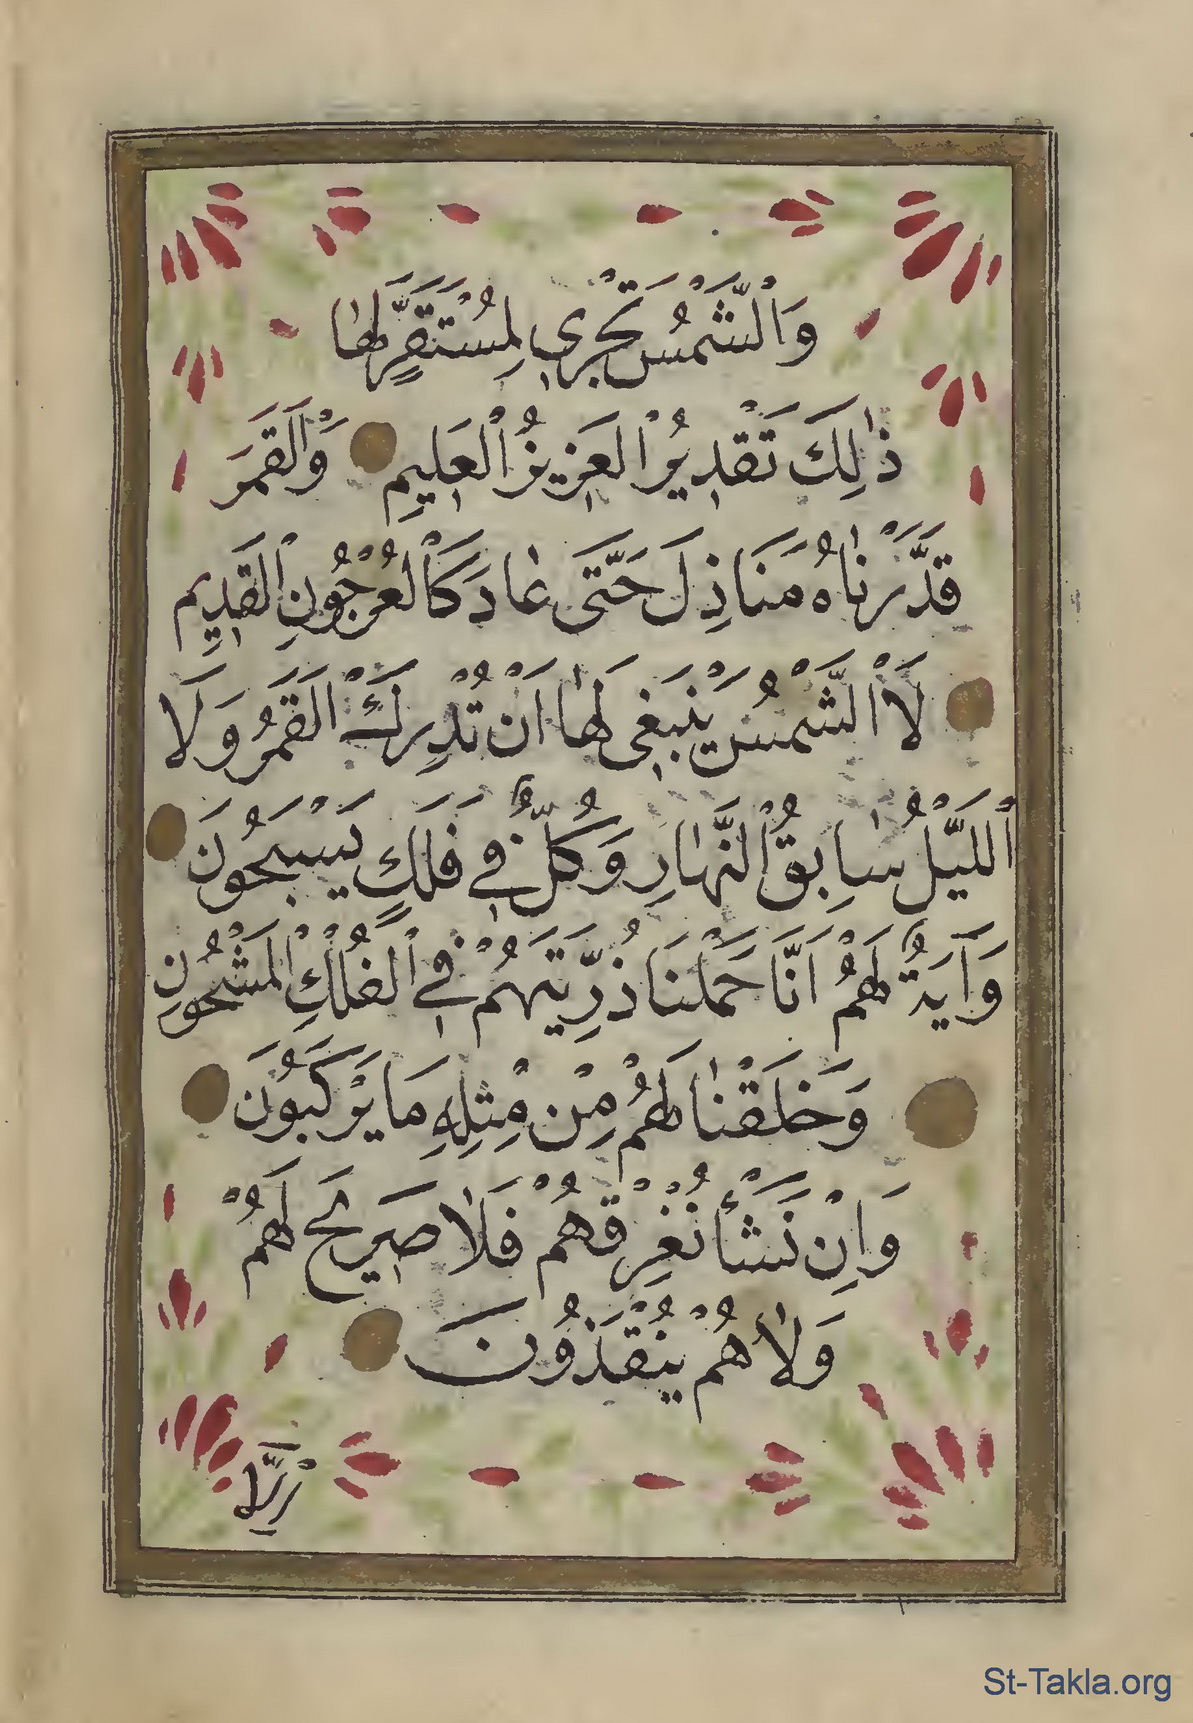 وَالشَّمْسُ تَجْرِي لِمُسْتَقَرٍّ لَهَا
ذٰلِكَ تَقْدِيرُ الْعَزِيزِ الْعَلِيمِ وَالْقَمَرَ
قَدَّرْنَاهُ مَنَازِلَ حَتَّى عَادَ كَالْعُرْجُونِ الْقَدِيمِ
لَا الشَّمْسُ يَنْبَغِي لَهَا اَنْ تُدْرِكَ الْقَمَرَ وَلَا
اللَّيْلُ سَابِقُ النَّهَارِ وَكُلٌّ فِي فَلَكٍ يَسْبَحُونَ
وَآيَةٌ لَهُمْ اَنَّا حَمَلْنَا ذُرِّيَّتَهُمْ فِي الْفُلْكِ الْمَشْحُونِ
وَخَلَقْنَا لَهُمْ مِنْ مِثْلِهِ مَا يَرْكَبُونَ
وَاِنْ نَشَأْ نُغْرِقْهُمْ فَلَا صَرِيخَ لَهُمْ
وَلَا هُمْ يُنْقَذُونَ
اِلَّا
St-Takla.org